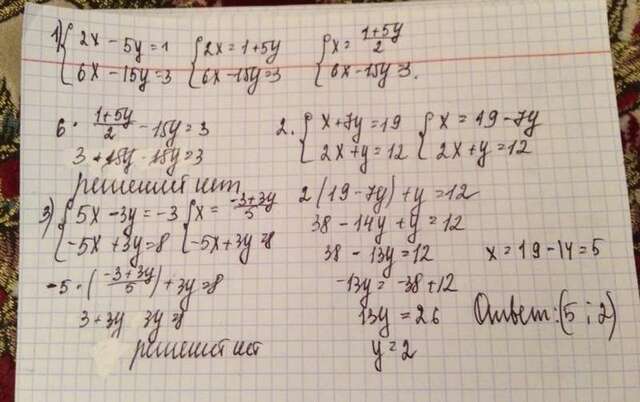 1) { 2x - 5y = 1 { 2x = 1+5y { x = (1+5y)/2
{ 6x - 15y = 3 { 6x - 15y = 3 { 6x - 15y = 3.
6 · (1+5y)/2 - 15y = 3
3 + 15y - 15y = 3
решений нет
2. { x + 7y = 19 { x = 19 - 7y
{ 2x + y = 12 { 2x + y = 12
2(19 - 7y) + y = 12
38 - 14y + y = 12
38 - 13y = 12
-13y = -38 + 12
13y = 26
y = 2
x = 19 - 14 = 5
Ответ: (5 ; 2)
3) { 5x - 3y = -3 { x = (-3+3y)/5
{ -5x + 3y = 8 { -5x + 3y = 8
-5 · ((-3+3y)/5) + 3y = 8
3 + 3y 3y = 8
решений нет